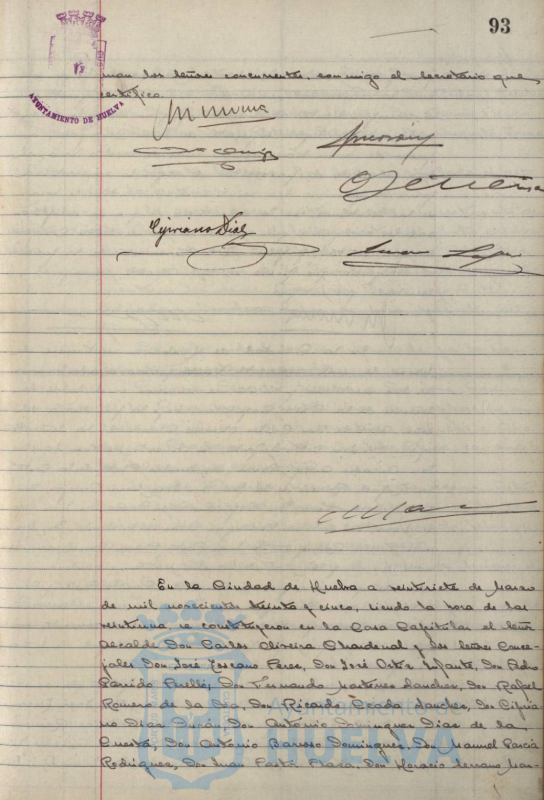 93
man los señores concurrentes, conmigo el Secretario que
certifico.
AYUNTAMIENTO DE HUELVA
Cipriano Díaz
En la Ciudad de Huelva a veintisiete de Marzo
de mil novecientos treinta y cinco, siendo la hora de las
veintiuna, se constituyeron en la Casa Capitular el Señor
Alcalde Don Carlos Oliveira Chardenal y los Señores Conce-
jales Don José Toscano Pérez, Don José Ortiz Infante, Don Pedro
Garrido Perelló, Don Fernando Martínez Sánchez, Don Rafael
Romero de la Don Ricardo Terada Sánchez, Don Cipria-
no Díaz Don Antonio Domínguez Díaz de la
Cuesta, Don Antonio Barroso Domínguez, Don Manuel García
Rodríguez, Don Juan Plaza, Don Horacio Serrano Mar-
HUELVA